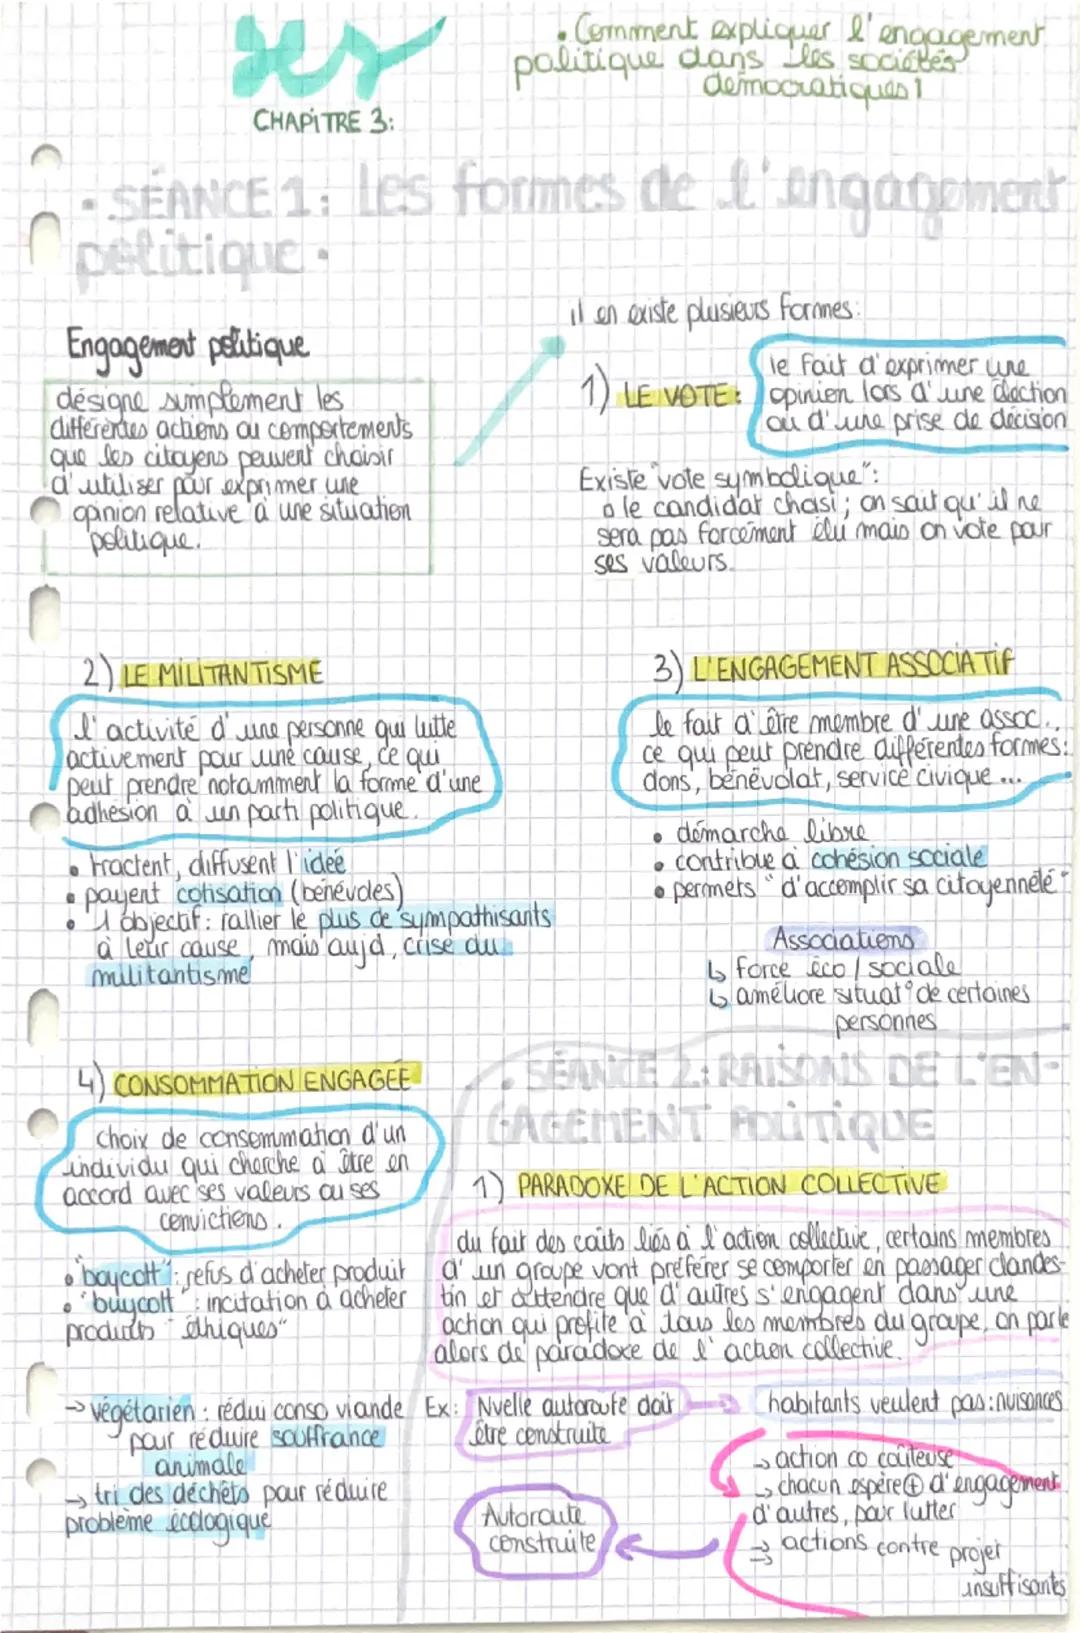 ses
• Comment expliquer l'engagement
politique dans les sociétés
démocratiques !
CHAPITRE 3:
• SÉANCE 1: Les formes de l'engagement
politique •
Engagement politique
désigne simplement les
différentes actions ou comportements
que les citoyens peuvent choisir
d'utiliser pour exprimer une
opinion relative à une situation
politique.
il en existe plusieurs formes:
1) LE VOTE:
le fait d'exprimer une
opinion lors d'une élection
ou d'une prise de décision
Existe "vote symbolique":
o le candidat choisi; on sait qu'il ne
sera pas forcément élu mais on vote pour
ses valeurs.
2) LE MILITANTISME
l'activité d'une personne qui lutte
activement pour une cause, ce qui
peut prendre notamment la forme d'une
adhésion à un parti politique.
• tractent, diffusent l'idée
• payent cotisation (bénévoles)
• 1 objectif: rallier le plus de sympathisants
à leur cause, mais aujd, crise du
militantisme
3) L'ENGAGEMENT ASSOCIATIF
le fait d'être membre d'une assoc.,
ce qui peut prendre différentes formes:
dons, bénévolat, service civique...
• démarche libre
• contribue à cohésion sociale
• permets "d'accomplir sa citoyenneté"
Associations
↳ force éco / sociale
↳ améliore situat° de certaines
personnes
4) CONSOMMATION ENGAGÉE
choix de consommation d'un
individu qui cherche à être en
accord avec ses valeurs ou ses
convictions.
• "boycott": refus d'acheter produit
• "buycott": incitation à acheter
produits "éthiques"
→ végétarien: rédui conso viande
pour réduire souffrance
animale
→ tri des déchêts pour réduire
problème écologique
• SÉANCE 2: RAISONS DE L'EN-
GAGEMENT POLITIQUE
1) PARADOXE DE L'ACTION COLLECTIVE
du fait des coûts liés à l'action collective, certains membres
d'un groupe vont préférer se comporter en passager clandes-
tin et attendre que d'autres s'engagent dans une
action qui profite à tous les membres du groupe, on parle
alors de paradoxe de l'action collective.
Ex: Nvelle autoroute doit
être construite
habitants veulent pas: nuisances
→ action co coûteuse
→ chacun espère ⊕ d'engagement
d'autres, pour lutter
→ actions contre projet
insuffisants
Autoroute
construite